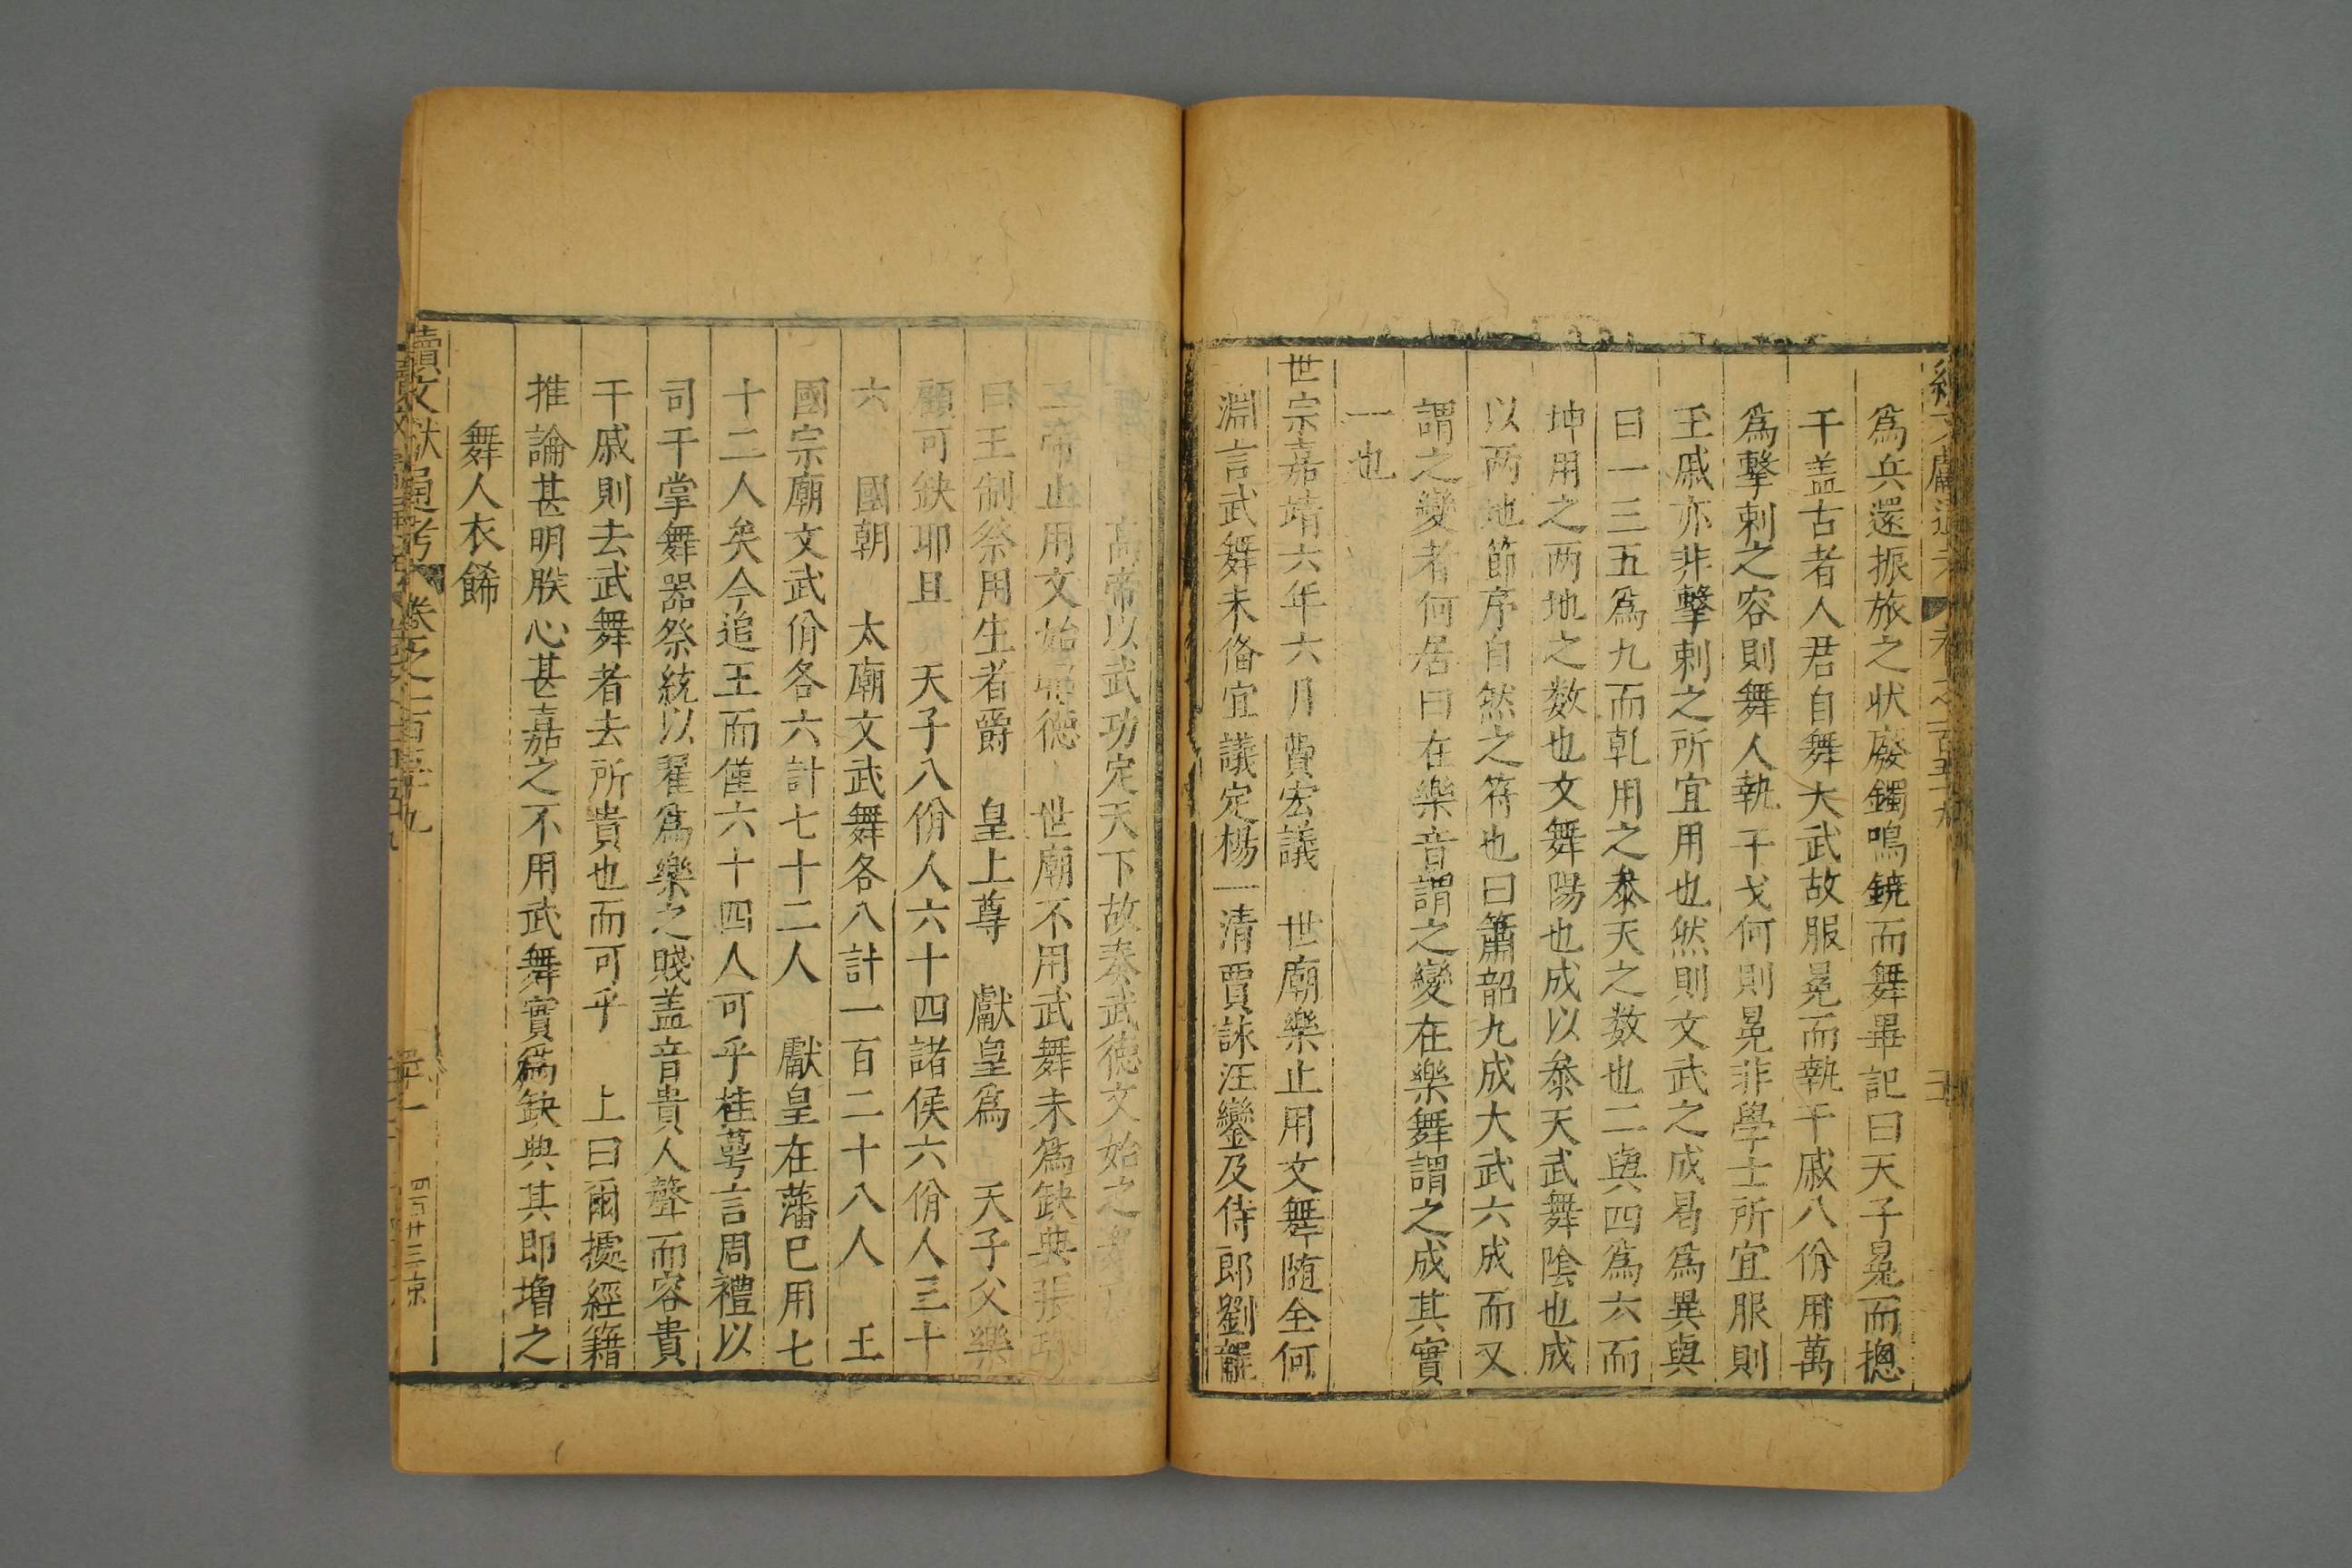 爲兵還振旅之狀廢鐲鳴鐃而舞畢記曰天子冕而摠
干盖古者人君自舞大武故服冕而執干戚八佾用萬
爲擊刺之容則舞人執干戈何則冕非學士所宜服則
玉戚亦非擊刺之所宜用也然則文武之成曷爲異與
曰一三五爲九而乹用之叅天之数也二與四爲六而
坤用之两地之数也文舞陽也成以叅天武舞陰也成
以两地節序自然之符也曰簫韶九成大武六成而又
謂之變者何居曰在樂音謂之變在樂舞謂之成其實
一也
世宗嘉靖六年六月費宏議 世廟樂止用文舞随全何
淵言武舞未俻宜議定楊一清賈詠汪鑾及侍郎劉龍
高帝以武功定天下故奏武德文始之
二帝止用文始昭德 世廟不用武舞未爲缺典張璁
曰王制祭用生者爵 皇上尊 獻皇爲 天子父樂
顧可缺耶且 天子八佾人六十四諸侯六佾人三十
六 國朝 太廟文武舞各八計一百二十八人 王
國宗廟文武佾各六計七十二人 獻皇在藩已用七
十二人矣今追王而僅六十四人可乎桂萼言周禮以
司干掌舞器祭統以翟爲樂之賤盖音貴人聲而容貴
干戚則去武舞者去所貴也而可乎 上曰爾擾經籍
推論甚明朕心甚嘉之不用武舞實爲缺典其即增之
舞人衣餙
續文献通考 卷之一百五十九
四百廿三京